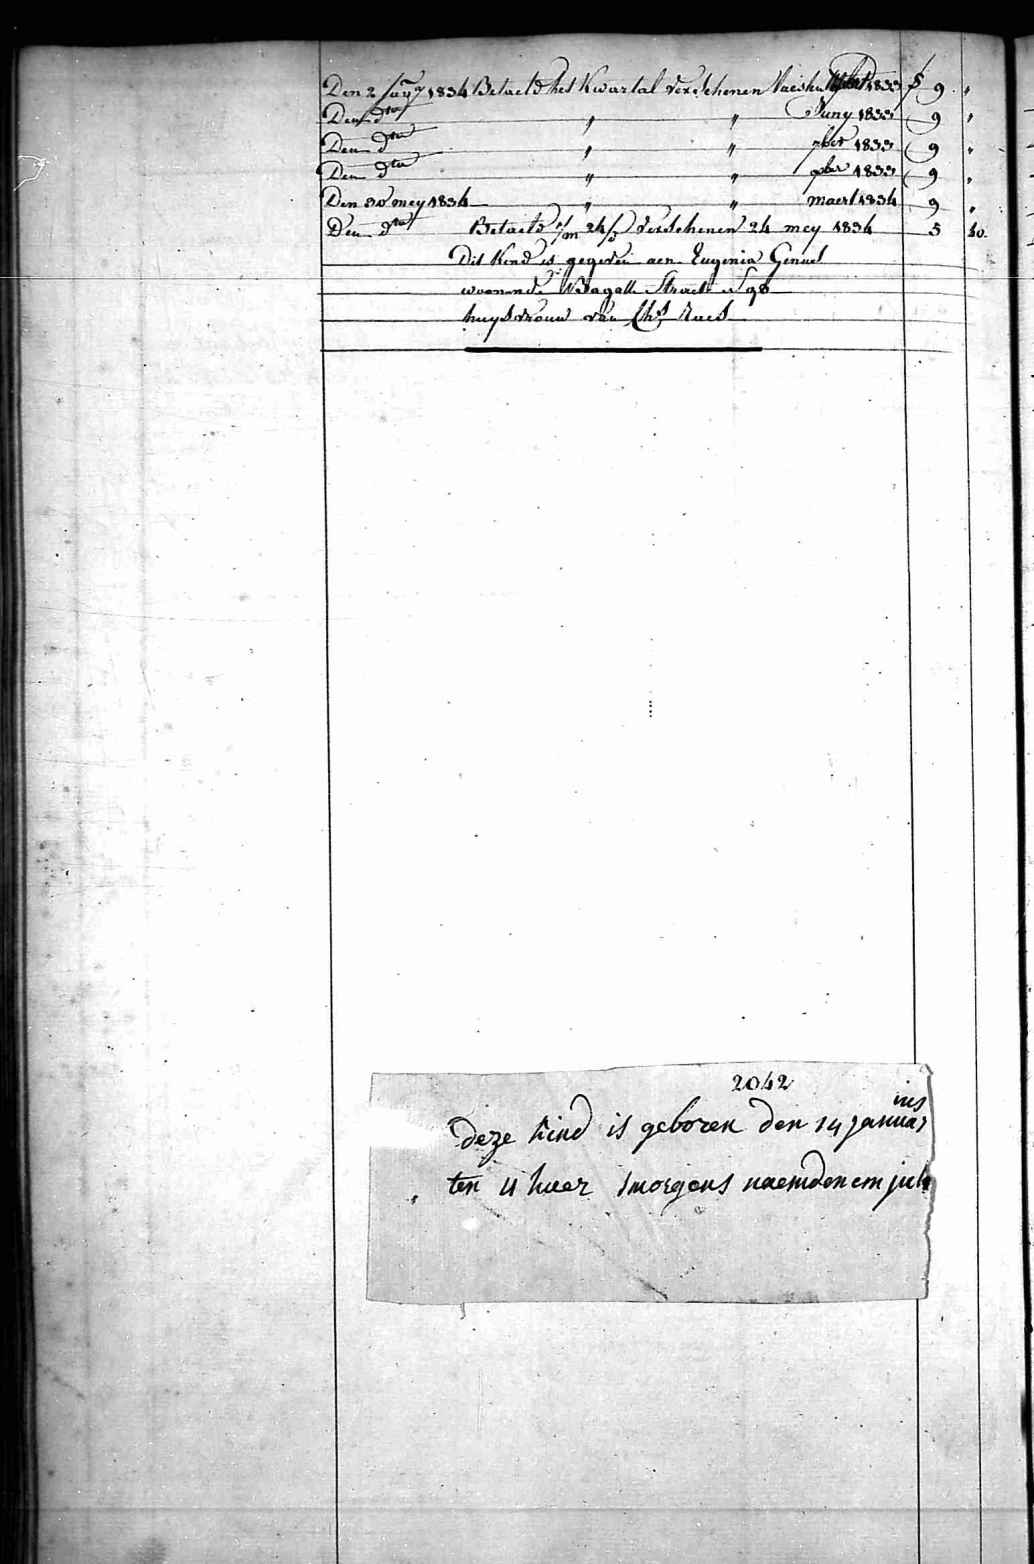 Den 2 Jany 1834 Betaeld het Kwartal verschenen 1833 f 9 "
Den dto " " Juny 1833 9 "
Den dto " " 7ber 1833 9 "
Den dto " " xber 1833 9 "
Den 30 mey 1834 " " maert 1834 9 "
Den dto Betaeld 1/m 24/d verschenen 24 mey 1834 5 40
Dit Kind is gegeven aen Eugenia
woonende Straete 98
huysvrouw van Chs
2042
deze kind is geboren den 14 januar
ius
ten 11 huer smorgens naemden em jul